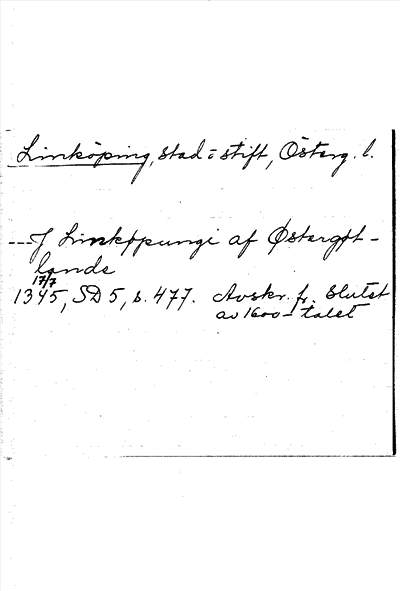 Linköping, stad o stift, Österg. l.
--- J Linkøpungi af Østergøt-
lande
17/7
1345, SD 5, s. 477. Avskr. fr. slutet
av 1600-talet